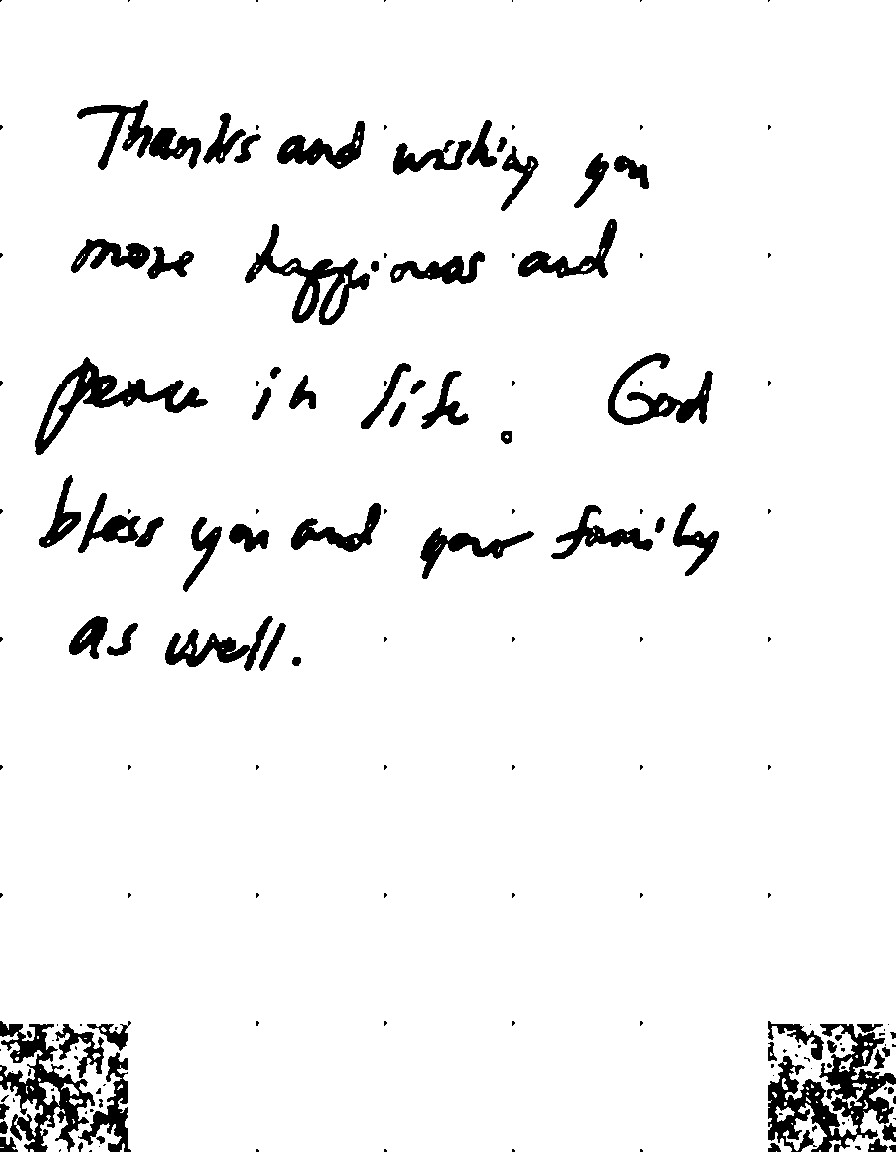 Thanks and wishing you
more happiness and
peace in life. God
bless you and your family
as well.